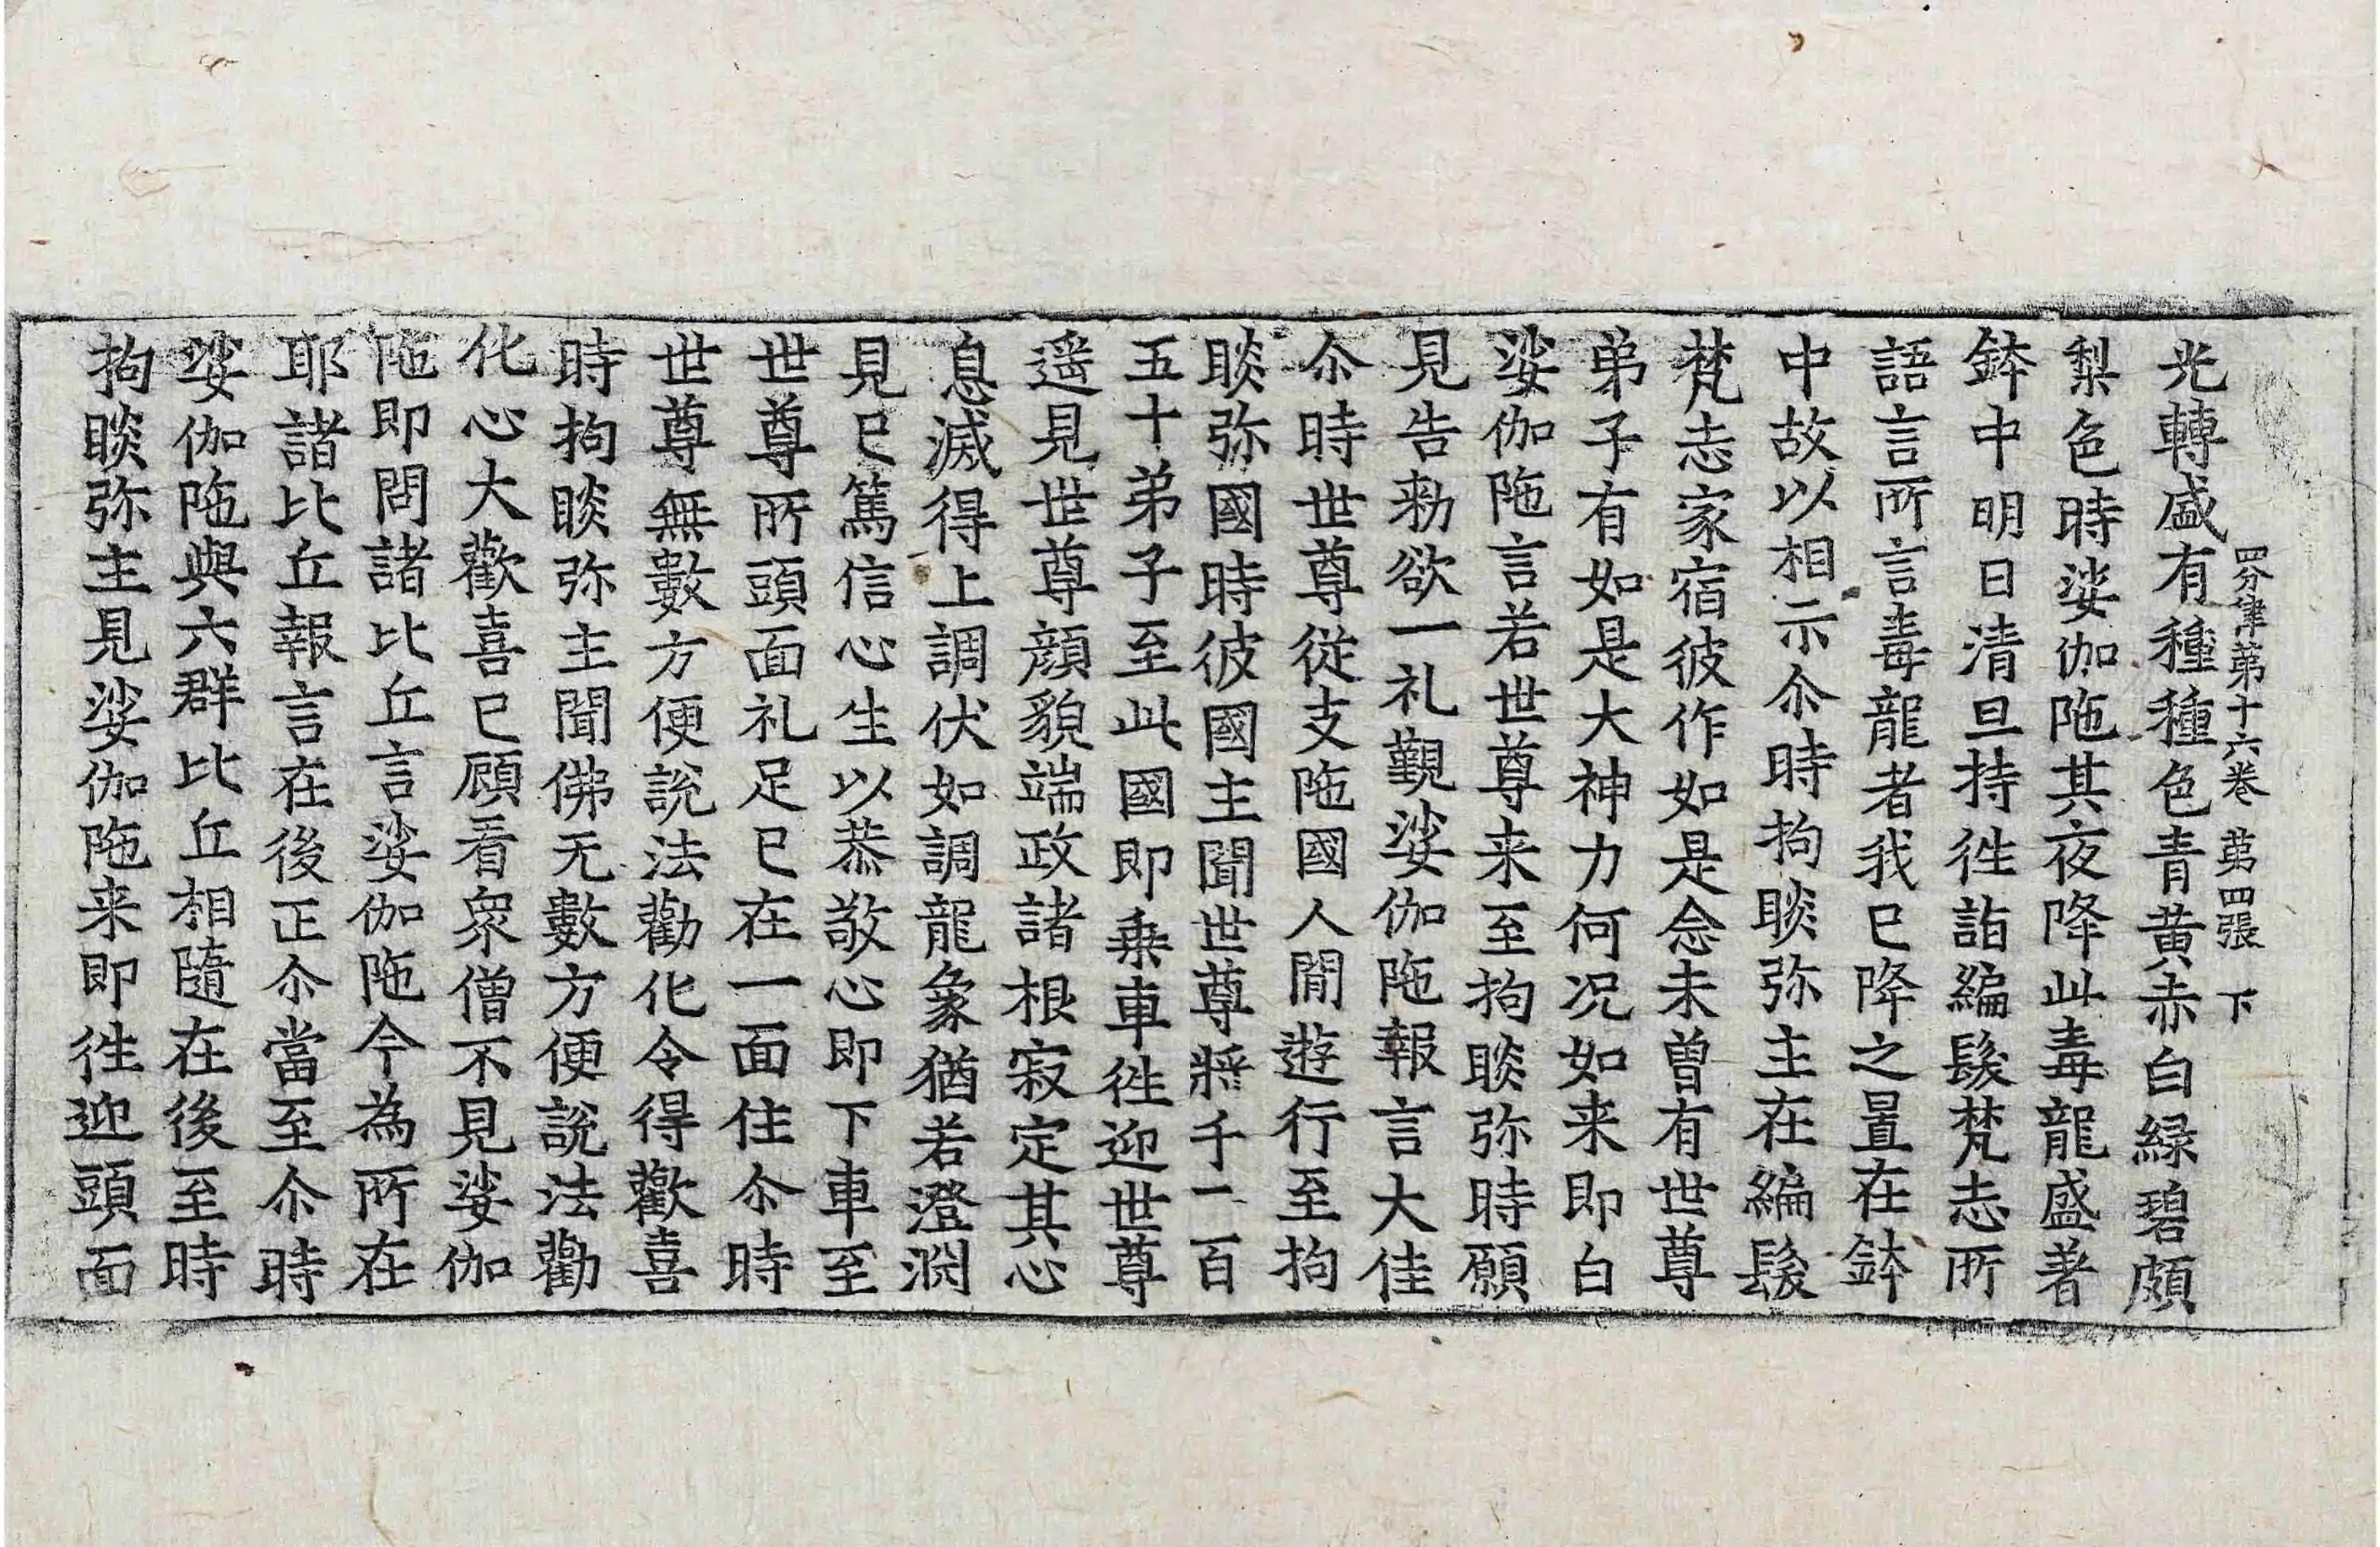 四分律第十六卷 第四張 下
光轉盛有種種色青黃赤白綠碧頗
梨色時娑伽陁其夜降此毒龍盛著
鉢中明日清旦持徃詣編髮梵志所
語言所言毒龍者我已降之置在鉢
中故以相示尒時拘睒弥主在編髮
梵志家宿彼作如是念未曾有世尊
弟子有如是大神力何况如来即白
娑伽陁言若世尊来至拘睒弥時願
見告勑欲一礼覲娑伽陁報言大佳
尒時世尊從支陁國人閒遊行至拘
睒弥國時彼國主聞世尊將千二百
五十弟子至此國即乗車徃迎世尊
遥見世尊顔貌端政諸根寂定其心
息滅得上調伏如調龍象猶若澄渊
見已篤信心生以恭敬心即下車至
世尊所頭面礼足已在一面住尒時
世尊無數方便說法勸化令得歡喜
時拘睒弥主聞佛无數方便說法勸
化心大歡喜已顧看衆僧不見娑伽
陁即問諸比丘言娑伽陁今為所在
耶諸比丘報言在後正尒當至尒時
娑伽陁與六群比丘相隨在後至時
拘睒弥主見娑伽陁来即徃迎頭面